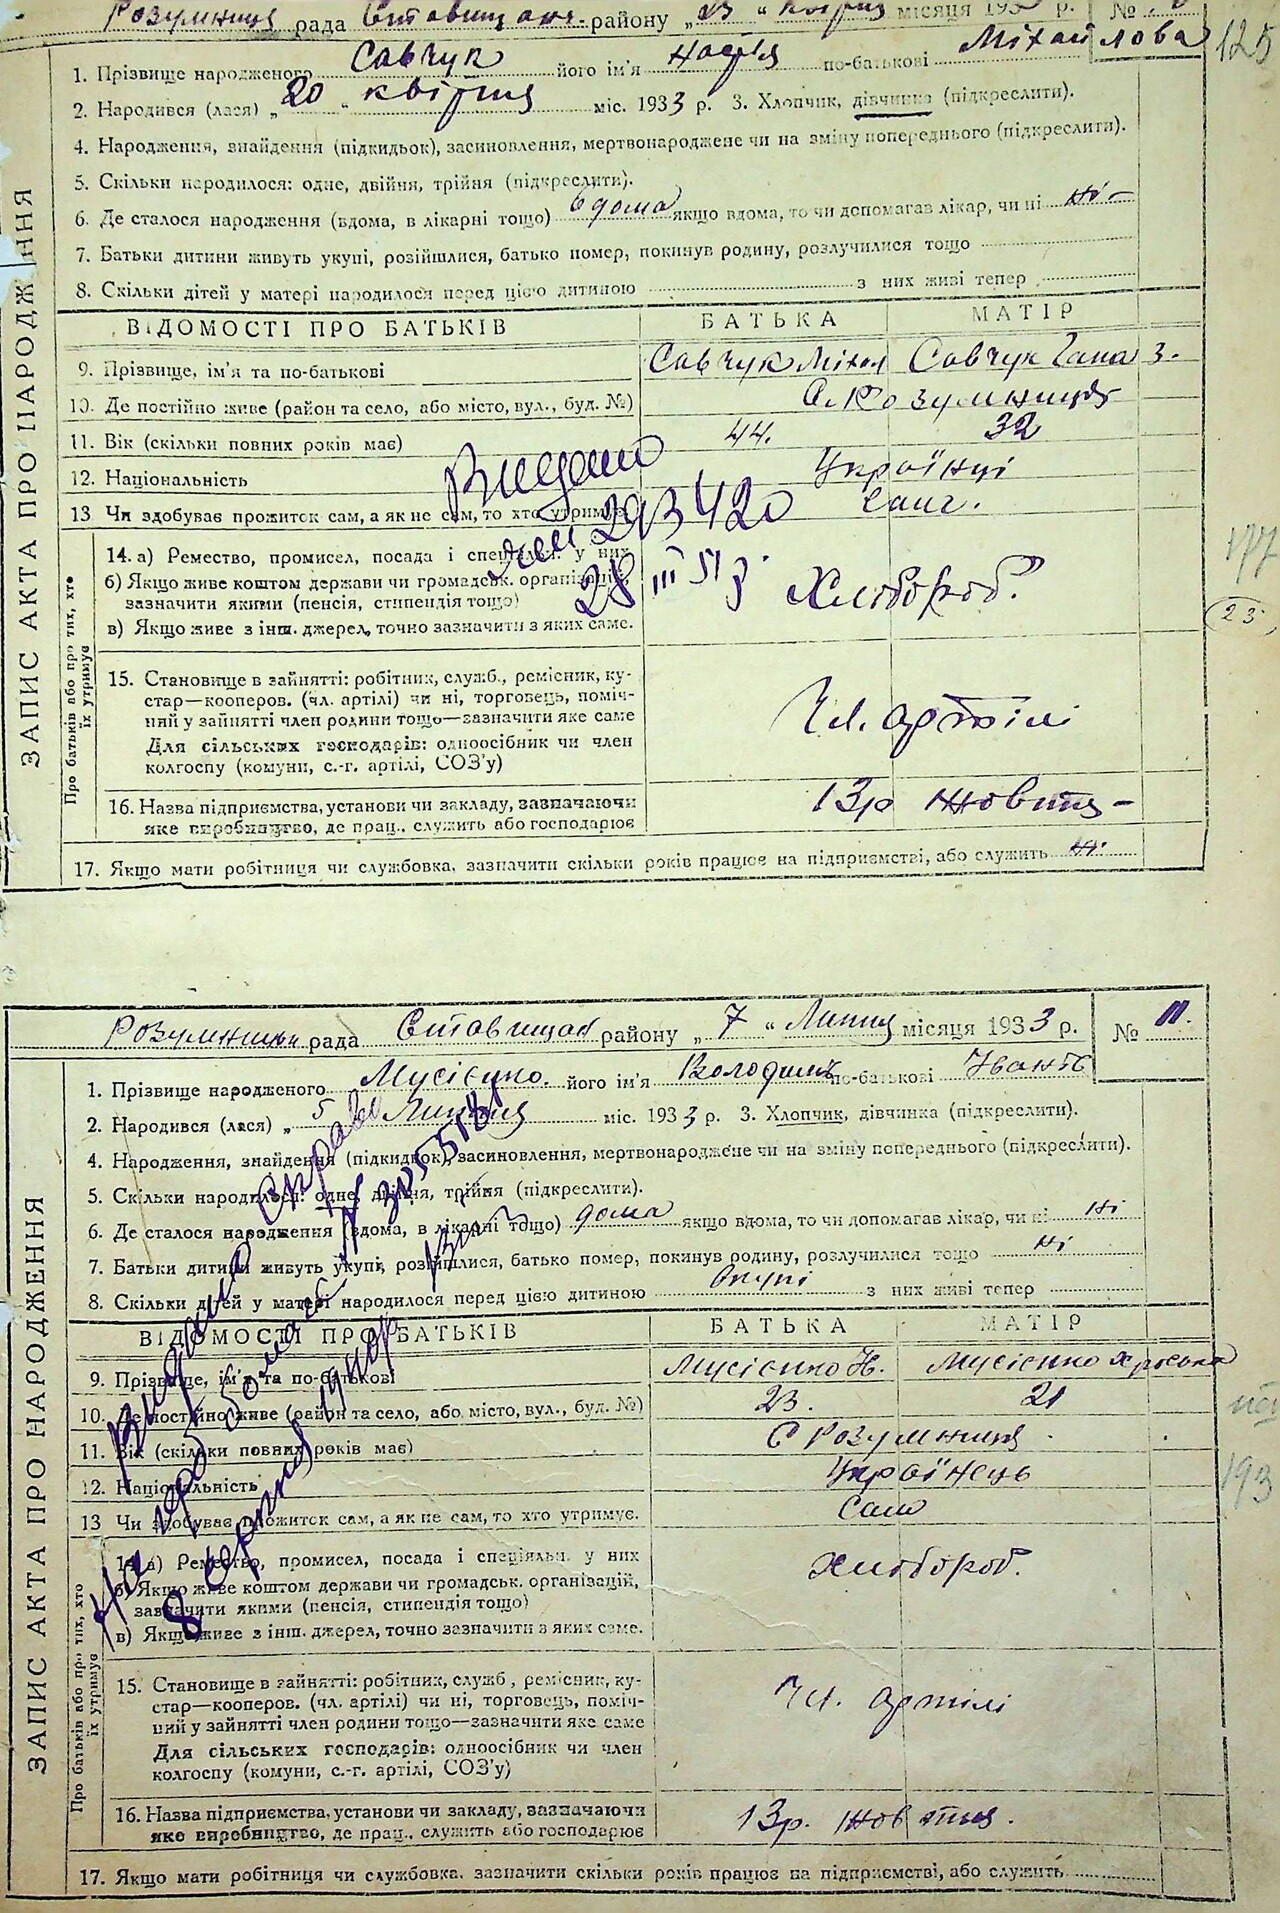 Розумниця рада Ставищан. району „23 " квітня місяця 1933 р. №
125
1. Прізвище народженого Савчук його ім'я Настя по-батькові Міхайлова
2. Народився (лася) „ 20 " квітня міс. 1933 р. 3. Хлопчик, дівчинка (підкреслити).
4. Народження, знайдення (підкидьок), засиновлення, мертвонароджене чи на зміну попереднього (підкреслити).
5. Скільки народилося: одне, двійня, трійня (підкреслити).
6. Де сталося народження (вдома, в лікарні тощо) вдома якщо вдома, то чи допомагав лікар, чи ні ні
7. Батьки дитини живуть укупі, розійшлися, батько помер, покинув родину, розлучилися тощо
8. Скільки дітей у матері народилося перед цією дитиною з них живі тепер
ЗАПИС АКТА ПРО НАРОДЖЕННЯ
ВІДОМОСТІ ПРО БАТЬКІВ БАТЬКА МАТІР
9. Прізвище, ім'я та по-батькові Савчук Міхал Савчук Гана З.
10. Де постійно живе (район та село, або місто, вул., буд. №) с. Розумниця
11. Вік (скільки повних років має) 44. 32
12. Національність Українці
13 Чи здобуває прожиток сам, а як не сам, то хто утримує.
Видано
293420
28 III 51 р.
Про батьків або про тих, хто їх утримує
14. а) Ремество, промисел, посада і спеціяльн. у них
б) Якщо живе коштом держави чи громадськ. організацій,
зазначити якими (пенсія, стипендія тощо) Хлібороб.
в) Якщо живе з інш. джерел, точно зазначити з яких саме.
177
23
15. Становище в зайнятті: робітник, служб., ремісник, ку-
стар—кооперов. (чл. артілі) чи ні, торговець, поміч-
ний у зайнятті член родини тощо—зазначити яке саме
Чл. артілі
Для сільських господарів: одноосібник чи член
колгоспу (комуни, с.-г. артілі, СОЗ'у)
16. Назва підприємства, установи чи закладу, зазначаючи
яке виробництво, де прац., служить або господарює
13р Жовтня
17. Якщо мати робітниця чи службовка, зазначити скільки років працює на підприємстві, або служить ні
рада Ставищан району „ 7 " Липня місяця 1933 р. № 11.
1. Прізвище народженого Мусієнко. його ім'я Володимір по-батькові Іванів
2. Народився (лася) „ 5 Липня міс. 1933 р. 3. Хлопчик, дівчинка (підкреслити).
4. Народження, знайдення (підкидьок), засиновлення, мертвонароджене чи на зміну попереднього (підкреслити).
5. Скільки народилося: одне, двійня, трійня (підкреслити).
6. Де сталося народження (вдома, в лікарні тощо) дома якщо вдома, то чи допомагав лікар, чи ні ні
7. Батьки дитини живуть укупі, розійшлися, батько помер, покинув родину, розлучилися тощо ні
8. Скільки дітей у матері народилося перед цією дитиною вкупі з них живі тепер
ЗАПИС АКТА ПРО НАРОДЖЕННЯ
ВІДОМОСТІ ПРО БАТЬКІВ БАТЬКА МАТІР
9. Прізвище, ім'я та по-батькові Мусієнко И. Мусієнко
10. Де постійно живе (район та село, або місто, вул., буд. №) 23. 21
11. Вік (скільки повних років має) с Розумниця
12. Національність Українець
13 Чи здобуває прожиток сам, а як не сам, то хто утримує. Сам
193
Про батьків або про тих, хто їх утримує
14. а) Ремество, промисел, посада і спеціяльн. у них
б) Якщо живе коштом держави чи громадськ. організацій,
зазначити якими (пенсія, стипендія тощо) Хлібороб.
в) Якщо живе з інш. джерел, точно зазначити з яких саме.
15. Становище в зайнятті: робітник, служб., ремісник, ку-
стар—кооперов. (чл. артілі) чи ні, торговець, поміч-
ний у зайнятті член родини тощо—зазначити яке саме
Чл. артілі
Для сільських господарів: одноосібник чи член
колгоспу (комуни, с.-г. артілі, СОЗ'у)
16. Назва підприємства, установи чи закладу, зазначаючи
яке виробництво, де прац., служить або господарює
13р. Жовтня.
17. Якщо мати робітниця чи службовка, зазначити скільки років працює на підприємстві, або служить
Видана
8 серпня